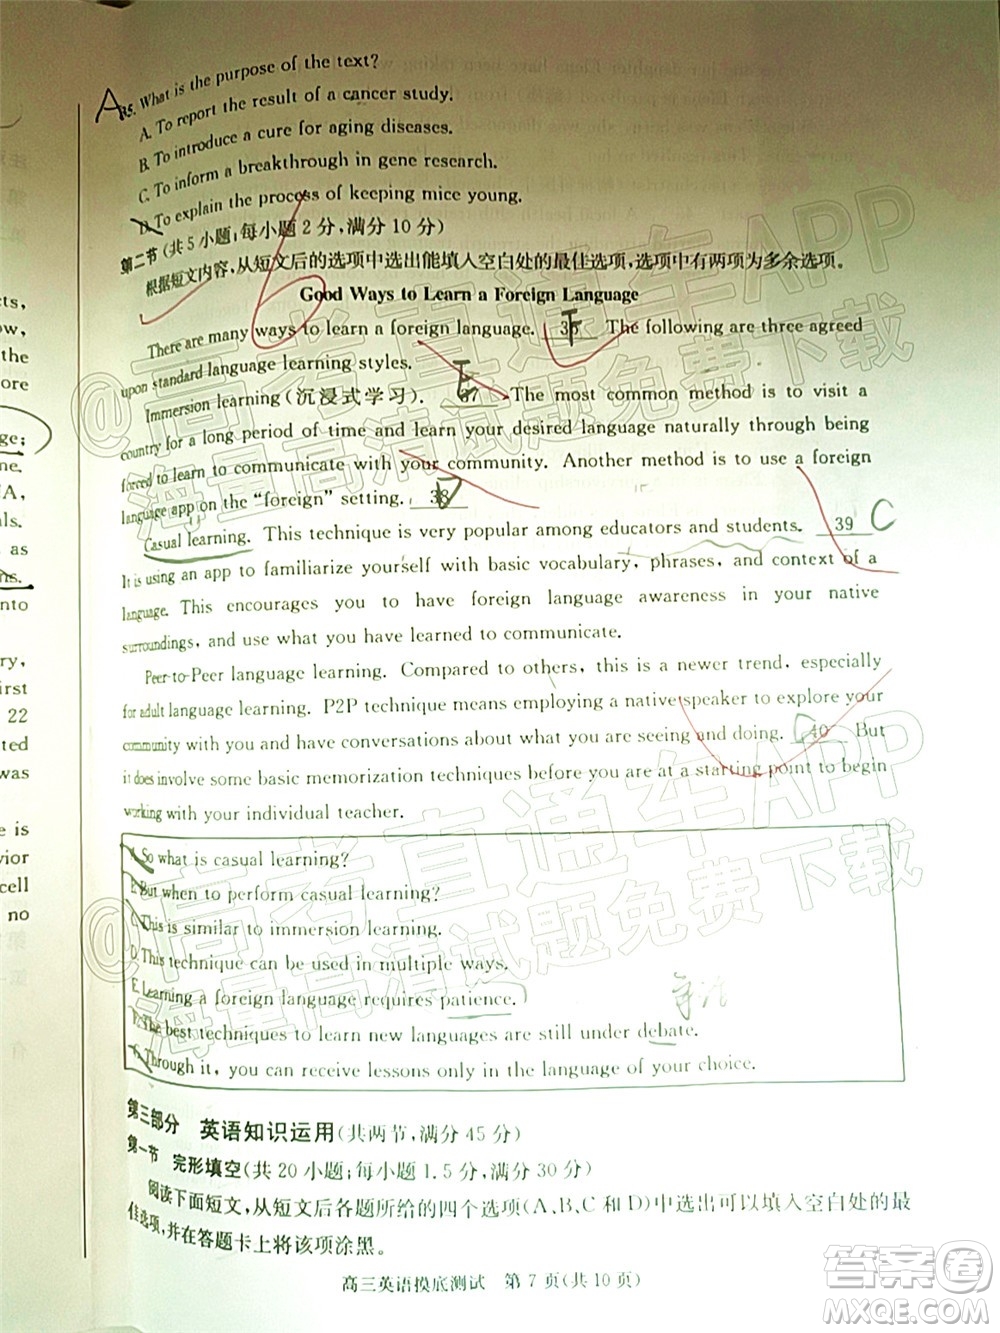 A 35. What is the purpose of the text?
A. To report the result of a cancer study.
B. To introduce a cure for aging diseases.
C. To inform a breakthrough in gene research.
D. To explain the process of keeping mice young.
第二节(共5小题;每小题2分,满分10分)
根据短文内容,从短文后的选项中选出能填入空白处的最佳选项,选项中有两项为多余选项。
Good Ways to Learn a Foreign Language
There are many ways to learn a foreign language. 36 F The following are three agreed
upon standard language learning styles.
Immersion learning(沉浸式学习). 37 E The most common method is to visit a
country for a long period of time and learn your desired language naturally through being
forced to learn to communicate with your community. Another method is to use a foreign
language app on the “foreign” setting. 38 D
Casual learning. This technique is very popular among educators and students. 39 C
It is using an app to familiarize yourself with basic vocabulary, phrases, and context of a
language. This encourages you to have foreign language awareness in your native
surroundings, and use what you have learned to communicate.
Peer-to-Peer language learning. Compared to others, this is a newer trend, especially
for adult language learning. P2P technique means employing a native speaker to explore your
community with you and have conversations about what you are seeing and doing. 40 But
it does involve some basic memorization techniques before you are at a starting point to begin
working with your individual teacher.
A. So what is casual learning?
B. But when to perform casual learning?
C. This is similar to immersion learning.
D. This technique can be used in multiple ways.
E. Learning a foreign language requires patience.
F. The best techniques to learn new languages are still under debate.
G. Through it, you can receive lessons only in the language of your choice.
第三部分 英语知识运用(共两节,满分45分)
第一节 完形填空(共20小题;每小题1.5分,满分30分)
阅读下面短文,从短文后各题所给的四个选项(A、B、C和D)中选出可以填入空白处的最
佳选项,并在答题卡上将该项涂黑。
高三英语摸底测试 第7页(共10页)
@高考直通车APP
海量高清试题免费下载
@高考直通车APP
海量高清试题免费下载
答案圈
MXQE.COM